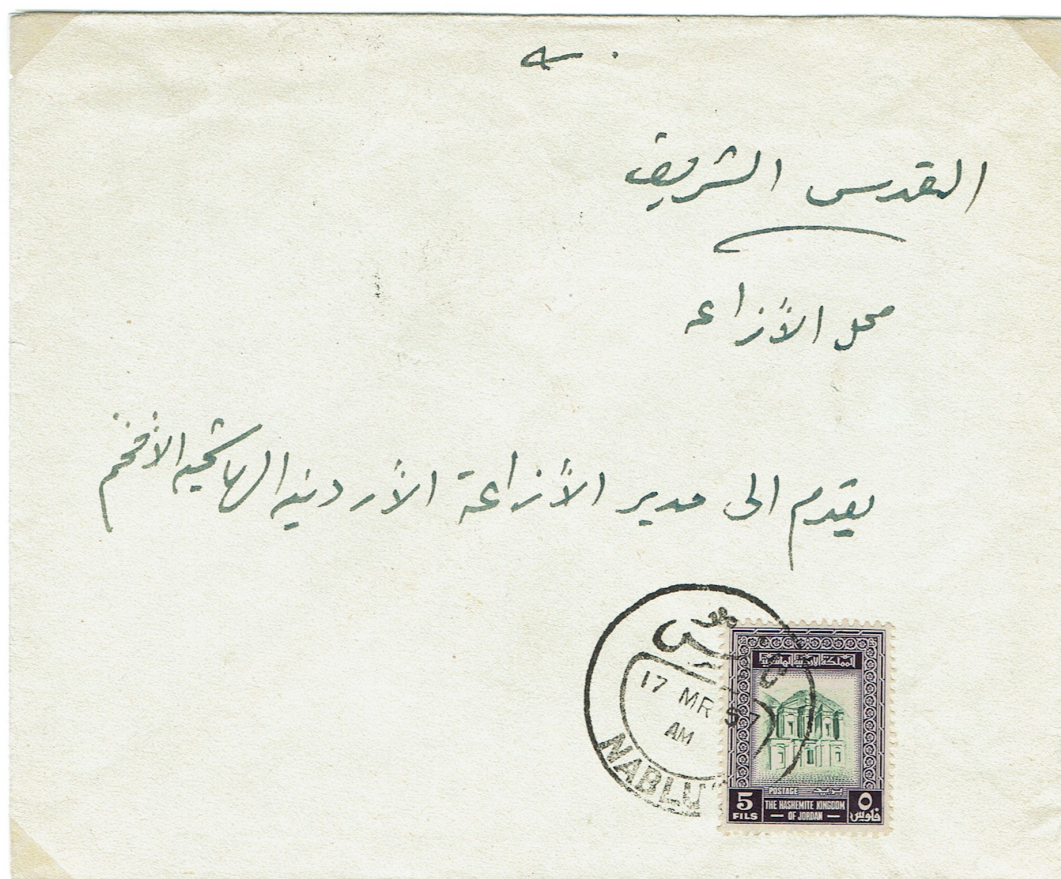 القدس الشريف
محل الأزاعه
يقدم الى مدير الأزاعة الأردنيه الهاشميه الأفخم
نابلس
17 MR 57
AM
NABLU
المملكة الأردنية الهاشمية
POSTAGE بريد
5 FILS THE HASHEMITE KINGDOM OF JORDAN ٥ فلوس